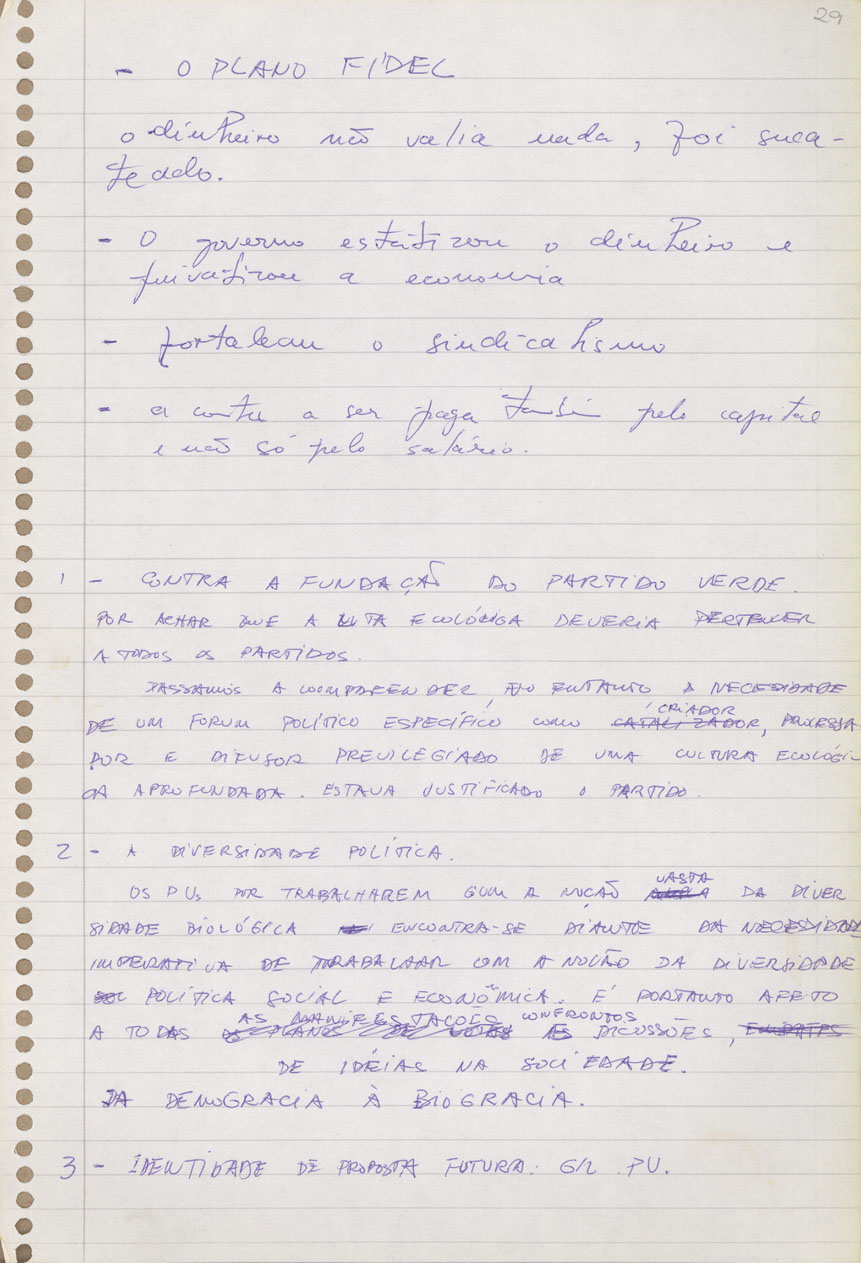 29
- O PLANO FIDEL
o dinheiro não valia nada, foi suca-
teado.
- O governo estatizou o dinheiro e
privatizou a economia
- fortaleceu o sindicalismo
- a conta a ser paga também pelo capital
e não só pelo salário.
1 - CONTRA A FUNDAÇÃO DO PARTIDO VERDE.
POR ACHAR QUE A LUTA ECOLÓGICA DEVERIA PERTENCER
A TODOS OS PARTIDOS.
PASSAMOS A COMPREENDER, NO ENTANTO A NECESIDADE
CRIADOR
DE UM FORUM POLÍTICO ESPECÍFICO COMO CATALIZADOR, PROCESSA
DOR E DIFUSOR PREVILEGIADO DE UMA CULTURA ECOLÓGI-
CA APROFUNDADA. ESTAVA JUSTIFICADO O PARTIDO.
2 - A DIVERSIDADE POLÍTICA.
VASTA
OS PVs POR TRABALHAREM COM A NOÇÃO AMPLA DA DIVER
SIDADE BIOLÓGICA ENCONTRA-SE DIANTE DA NECESSIDADE
IMPERATIVA DE TRABALHAR COM A NOÇÃO DA DIVERSIDADE
POLÍTICA SOCIAL E ECONÔMICA. É PORTANTO AFETO
AS MANIFESTAÇÕES CONFRONTOS
A TODAS OS PLANOS DE AS DICUSSÕES, EMBATES
DE IDÉIAS NA SOCIEDADE.
DA DEMOCRACIA À BIOCRACIA.
3 - IDENTIDADE DE PROPOSTA FUTURA. PV.